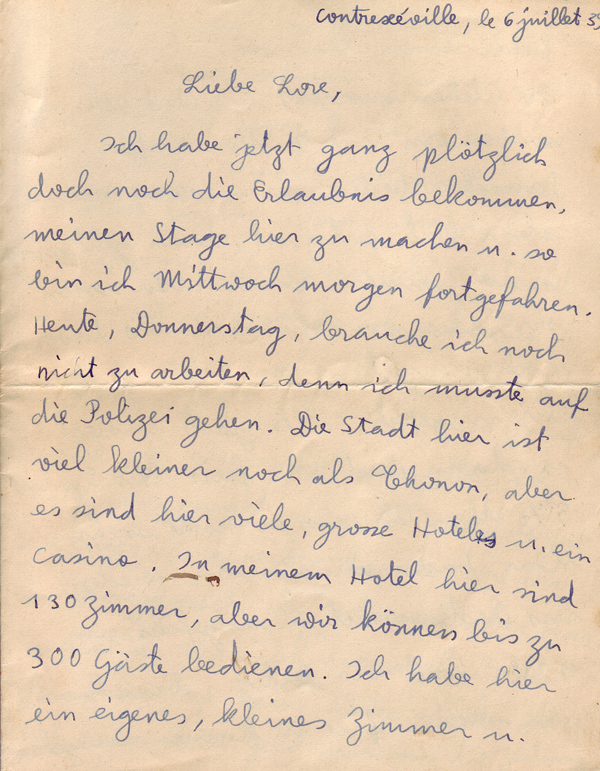 Contrexéville, le 6 juillet 39
Liebe Lore,
Ich habe jetzt ganz plötzlich
doch noch die Erlaubnis bekommen,
meinen Stage hier zu machen u. so
bin ich Mittwoch morgen fortgefahren.
Heute, Donnerstag, brauche ich noch
nicht zu arbeiten, denn ich musste auf
die Polizei gehen. Die Stadt hier ist
viel kleiner noch als Thonon, aber
es sind hier viele, grosse Hotels u. ein
Casino. In meinem Hotel hier sind
130 Zimmer, aber wir können bis zu
300 Gäste bedienen. Ich habe hier
ein eigenes, kleines Zimmer u.